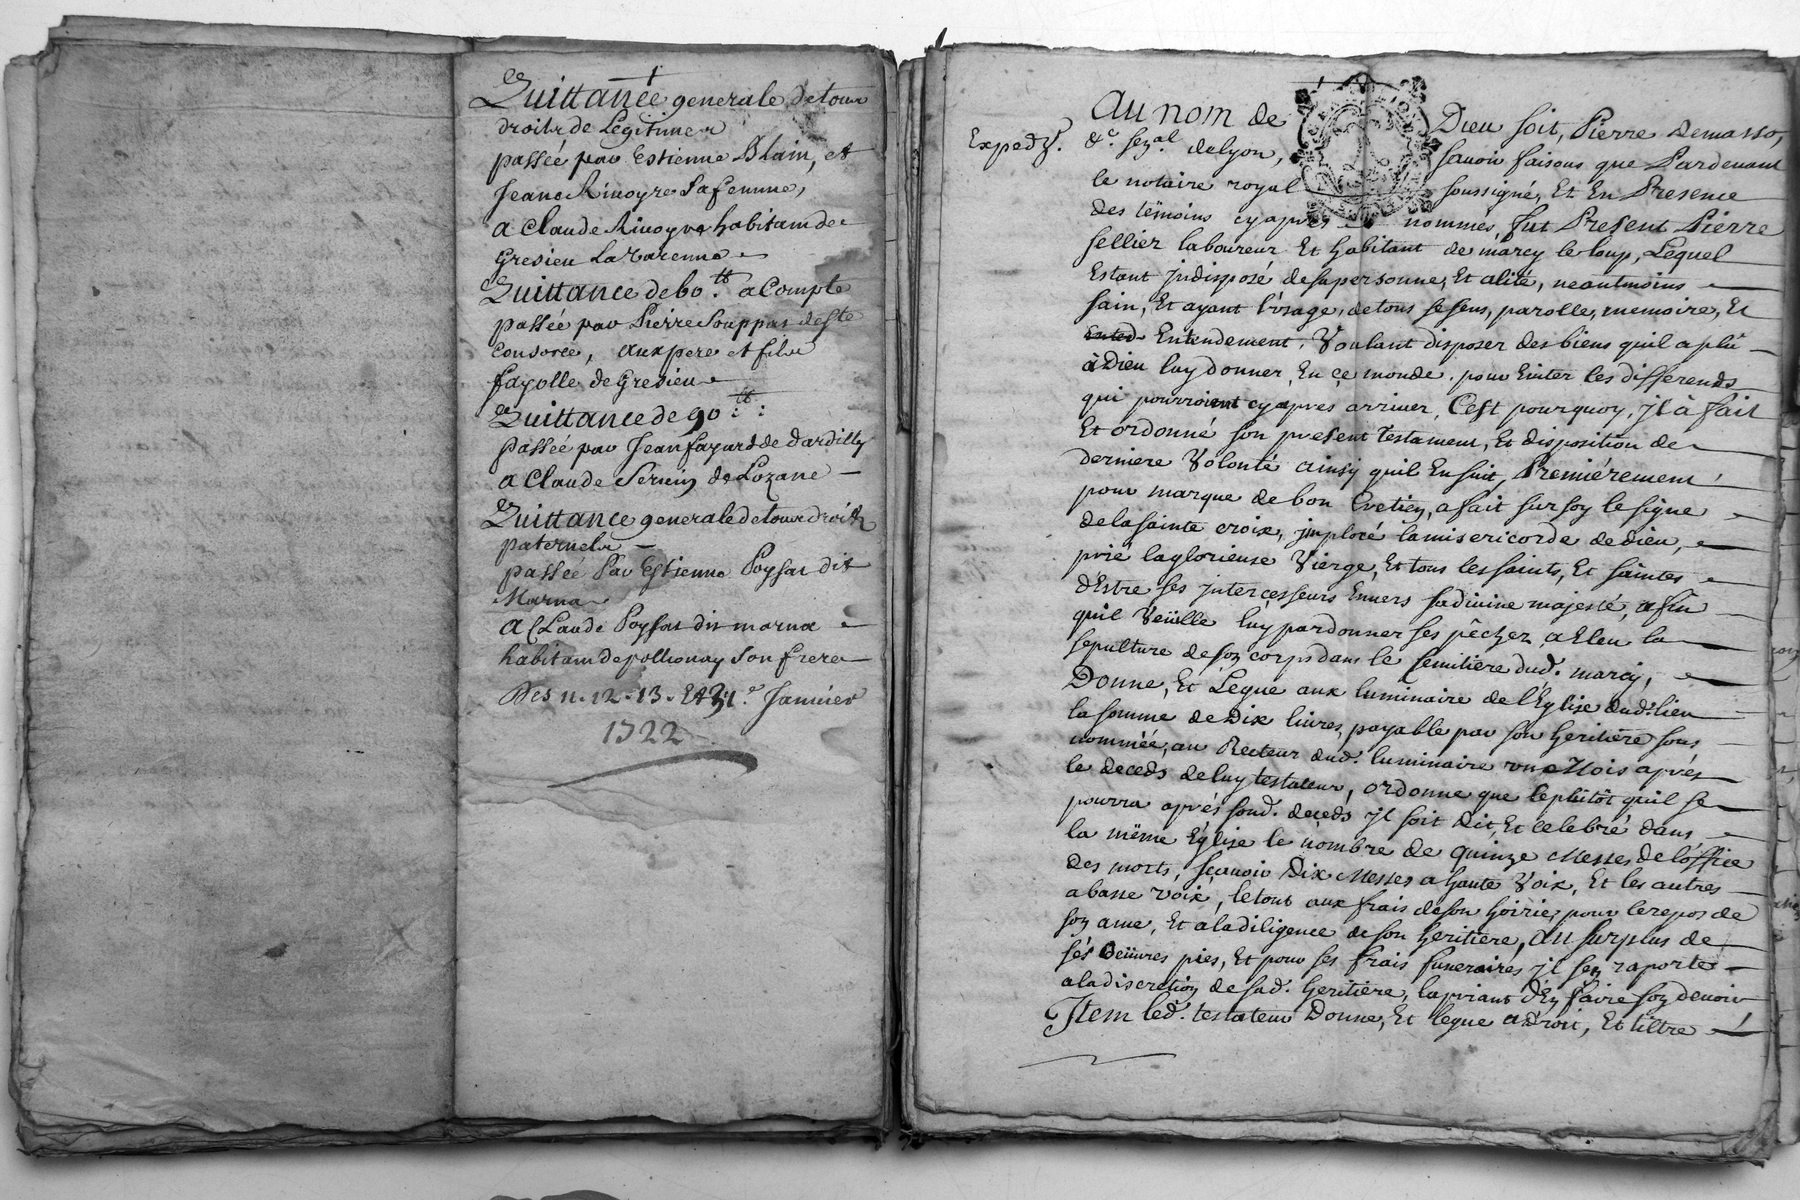 Quittance generale de tous
droits de Legitimes
passée par Estienne Blain, et
Jeane Rivoyre sa femme,
a Claude Rivoyre habitans de
Gresieu La Varenne
Quittance de 60.tt a Compte
passée par Pierre Souppas de Ste
Consorce, aux pere et fils
fayolle de Gresieu
Quittance de 90.tt
passée par Jean fayard de dardilly
a Claude de Lozane
Quittance generale de tous droits
paternels
passée Par Estienne Poyfat dit
Marna
a CLaude Poyfat dit marna
habitans de pollionay son frere
Des 11. 12. 13. Et 31.e Janvier
1722
Au nom de Dieu soit, Pierre Demasso,
Expedz.
&c. sen.al de Lyon, savoir faisons que Pardevant
le notaire royal soussigné, Et En Presence
des têmoins cyaprès nommés, fut Present Pierre
sellier laboureur Et habitant de marcy le loup, Lequel
Estant jndisposé de sa personne, Et alité, neantmoins
sain, Et ayant l'vsage, de tous se sens, parolle, memoire, Et
Entendement, Voulant disposer des biens quil a plû
à Dieu luy donner, En çe monde. pour Eviter les differends
qui pourroient cyapres arriver, C'est pourquoy, jl à fait
Et ordonné son present testament, Et disposition de
derniere Volonté ainsy quil Ensuit, Premiérement
pour marque de bon Cretien, a fait sur soy le signe
de la sainte croix, jmploré la misericorde de dieu,
prié la glorieuse Vierge, Et tous les saints, Et saintes
d'Estre ses jntercesseurs Envers sa divine majesté, afin
quil Veüille luy pardonner ses pêchez, a Eleu la
sepulture de son corps dans le semitiére dud. marcy,
Donne, Et Legue aux luminaire de l'Eglise dud. lieu
la somme de Dix livres, payable par son heritiére sous
nommée, au Recteur dud. luminaire vn Mois aprés
le deceds de luy testateur, ordonne que leplûtôt quil se
pourra aprés sond. deçeds jl soit Dit, Et celebré dans
la même Eglise le nombre de quinze Messes de l'office
des morts, sçavoir Dix Messes a haute Voix, Et les autres
a basse voix, le tout aux frais de son hoirie, pour le repos de
son ame, Et a la diligence de son heritiere, Au surplus de
sés Oeüvres pies, Et pour ses frais funeraires jl sen raporte
a la discretion de sad. heritiére, la priant d'En faire son devoir
Jtem led. testateur Donne, Et legue a Droit, Et tiltre